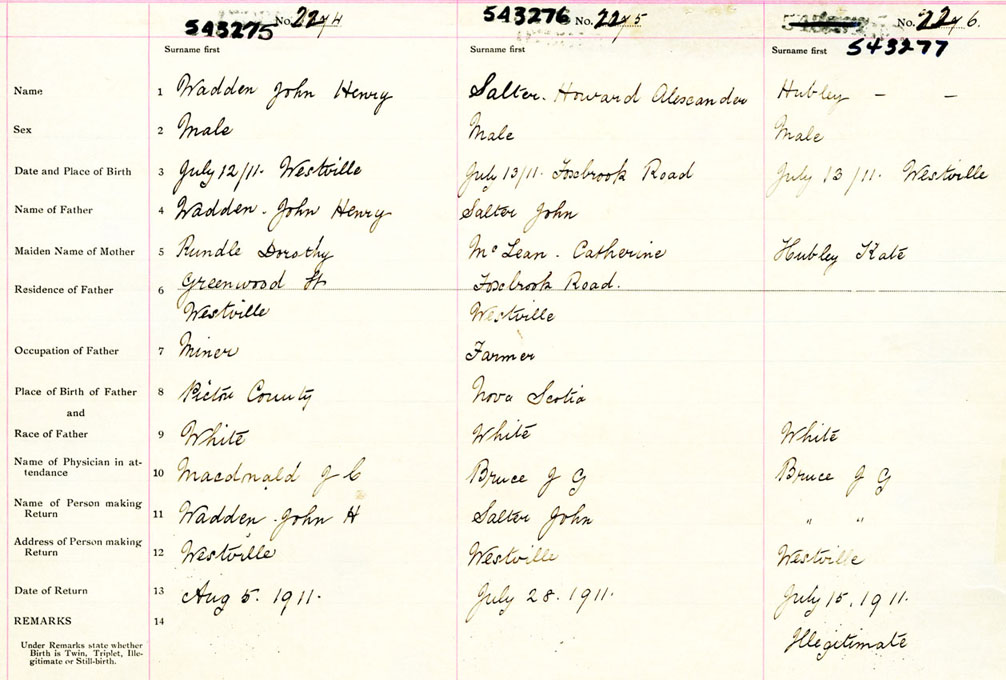 543275 No. 2274 543276 No. 2275 No. 2276.
543277
Surname first Surname first Surname first
Name 1 Wadden John Henry Salter. Howard Alexcander Hubley — —
Sex 2 Male Male Male
Date and Place of Birth 3 July 12/11. Westville July 13/11. Foxbrook Road July 13/11. Westville
Name of Father 4 Wadden. John Henry Salter John
Maiden Name of Mother 5 Rundle Dorothy McLean. Catherine Hubley Kate
Residence of Father 6 Greenwood St Foxbrook Road.
Westville Westville
Occupation of Father 7 Miner Farmer
Place of Birth of Father 8 Pictou County Nova Scotia
and
Race of Father 9 White White White
Name of Physician in at-
tendance 10 Macdnald J C Bruce J G Bruce J G
Name of Person making
Return 11 Wadden. John H Salter John " "
Address of Person making
Return 12 Westville Westville Westville
Date of Return 13 Aug 5. 1911. July 28. 1911. July 15, 1911.
REMARKS 14
Under Remarks state whether
Birth is Twin, Triplet, Ille-
gitimate or Still-birth.
Illegitimate